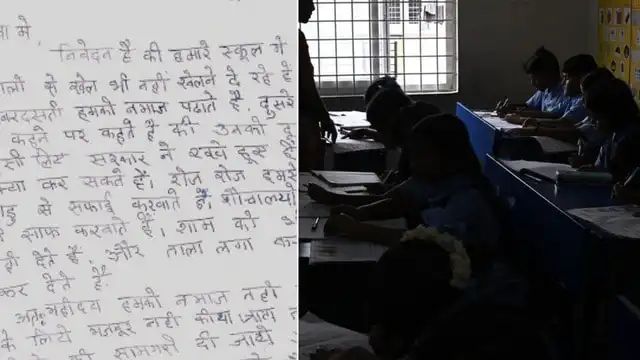 वा मे,
निवेदन है की हमारे स्कूल मे
वालो को खेल भी नहीं खेलने दे रहे हैं
बरदसती हमको नमाज पढाते हैं. दुसरे
कहने पर कहते है की उनको
ही लिए सरकार ने रखे हुए है
क्या कर सकते हैं। रोज रोज हमसे
झाडु से सफाई करवाते हैं। शौचालयो
साफ करवाते हैं। शाम को
ही देते हैं. और ताला लगा क-
कर देते हैं.
अतः महोदय हमको नमाज नही
के लिये मजबूर नही कीया जाता
की सामगरी दी जाये